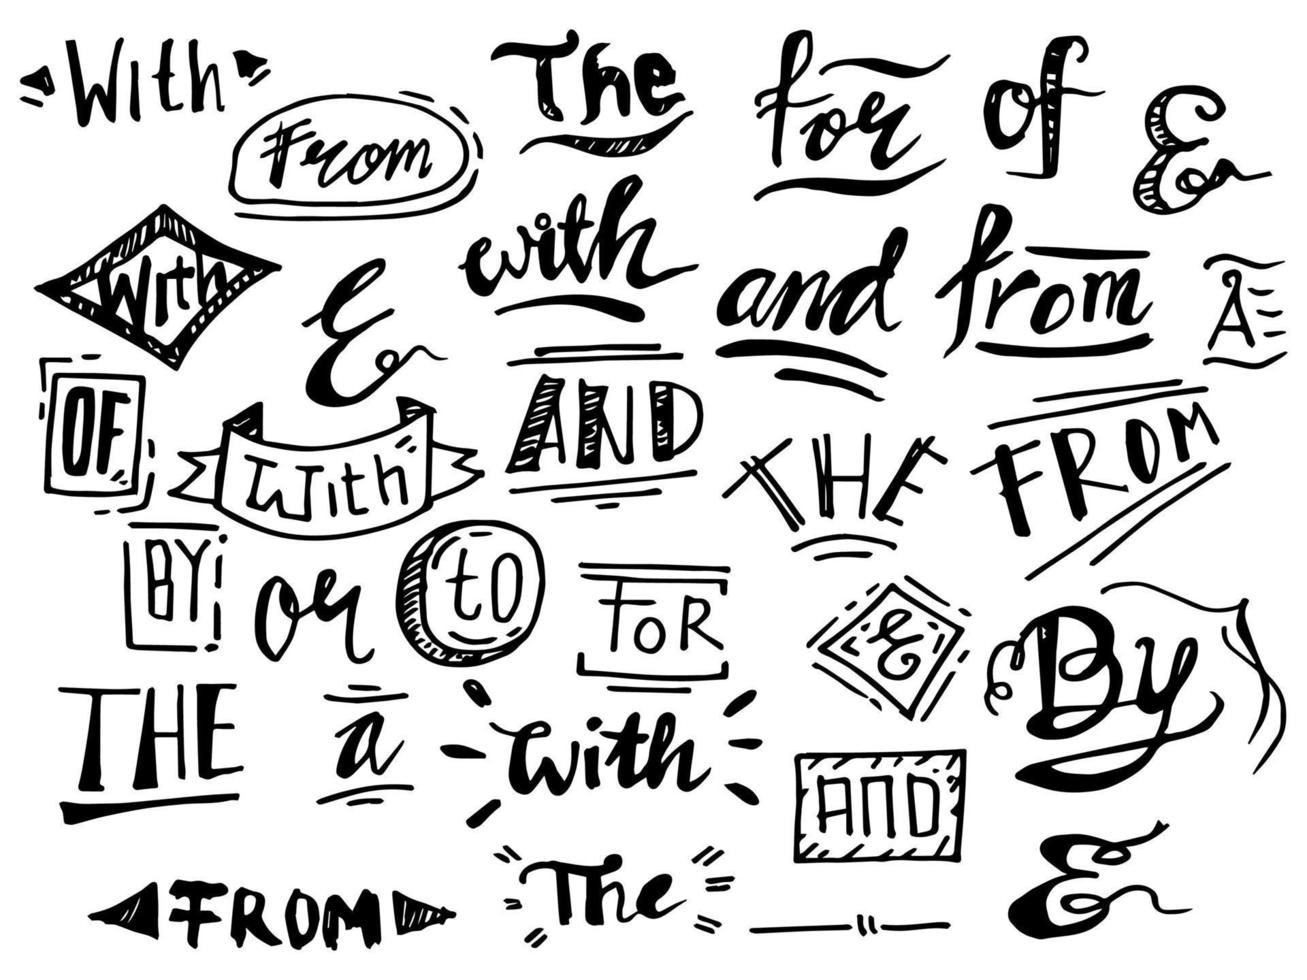 With
From
The
for
of
&
With
&
with
and
from
A
OF
With
AND
THE
FROM
BY
or
to
FOR
&
By
THE
a
with
AND
FROM
The
&